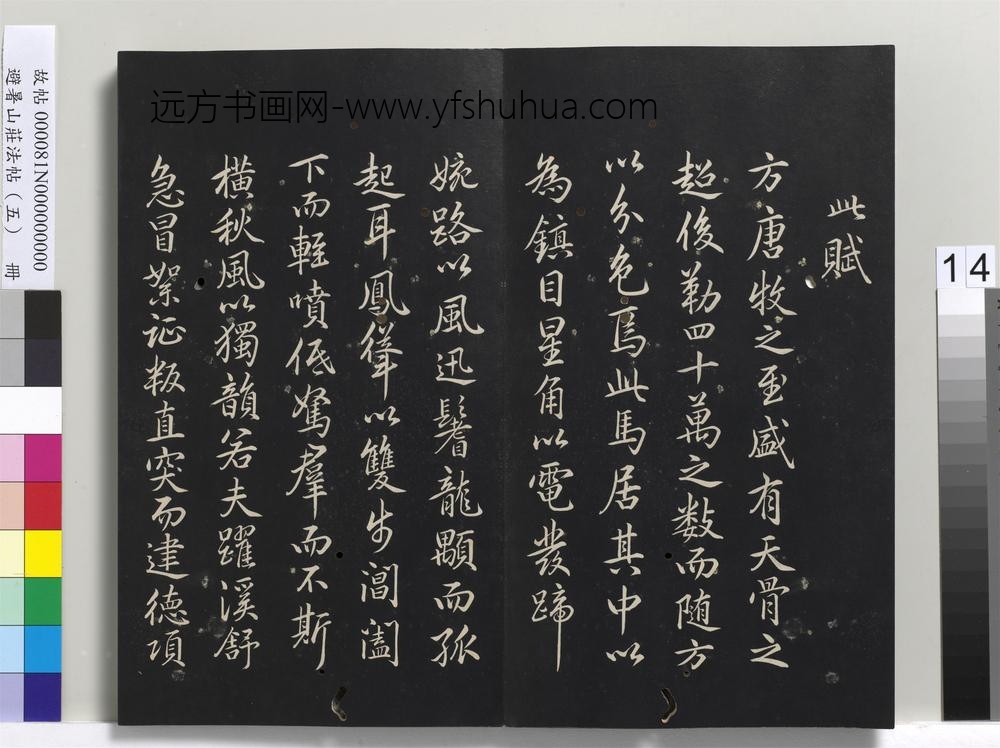 远方书画网-www.yfshuhua.com
此賦
方唐牧之至盛有天骨之
超俊勒四十萬之數而随方
以分色焉此馬居其中以
為鎮目星角以電發蹄
婉路以風迅鬐龍顒而孤
起耳鳳聳以雙步閶闔
下而輕噴低駑羣而不斯
橫秋風以獨韻若夫躍溪舒
急冒絮征叛直突而建德項
故帖000081N000000000
避暑山莊法帖（五） 冊
14